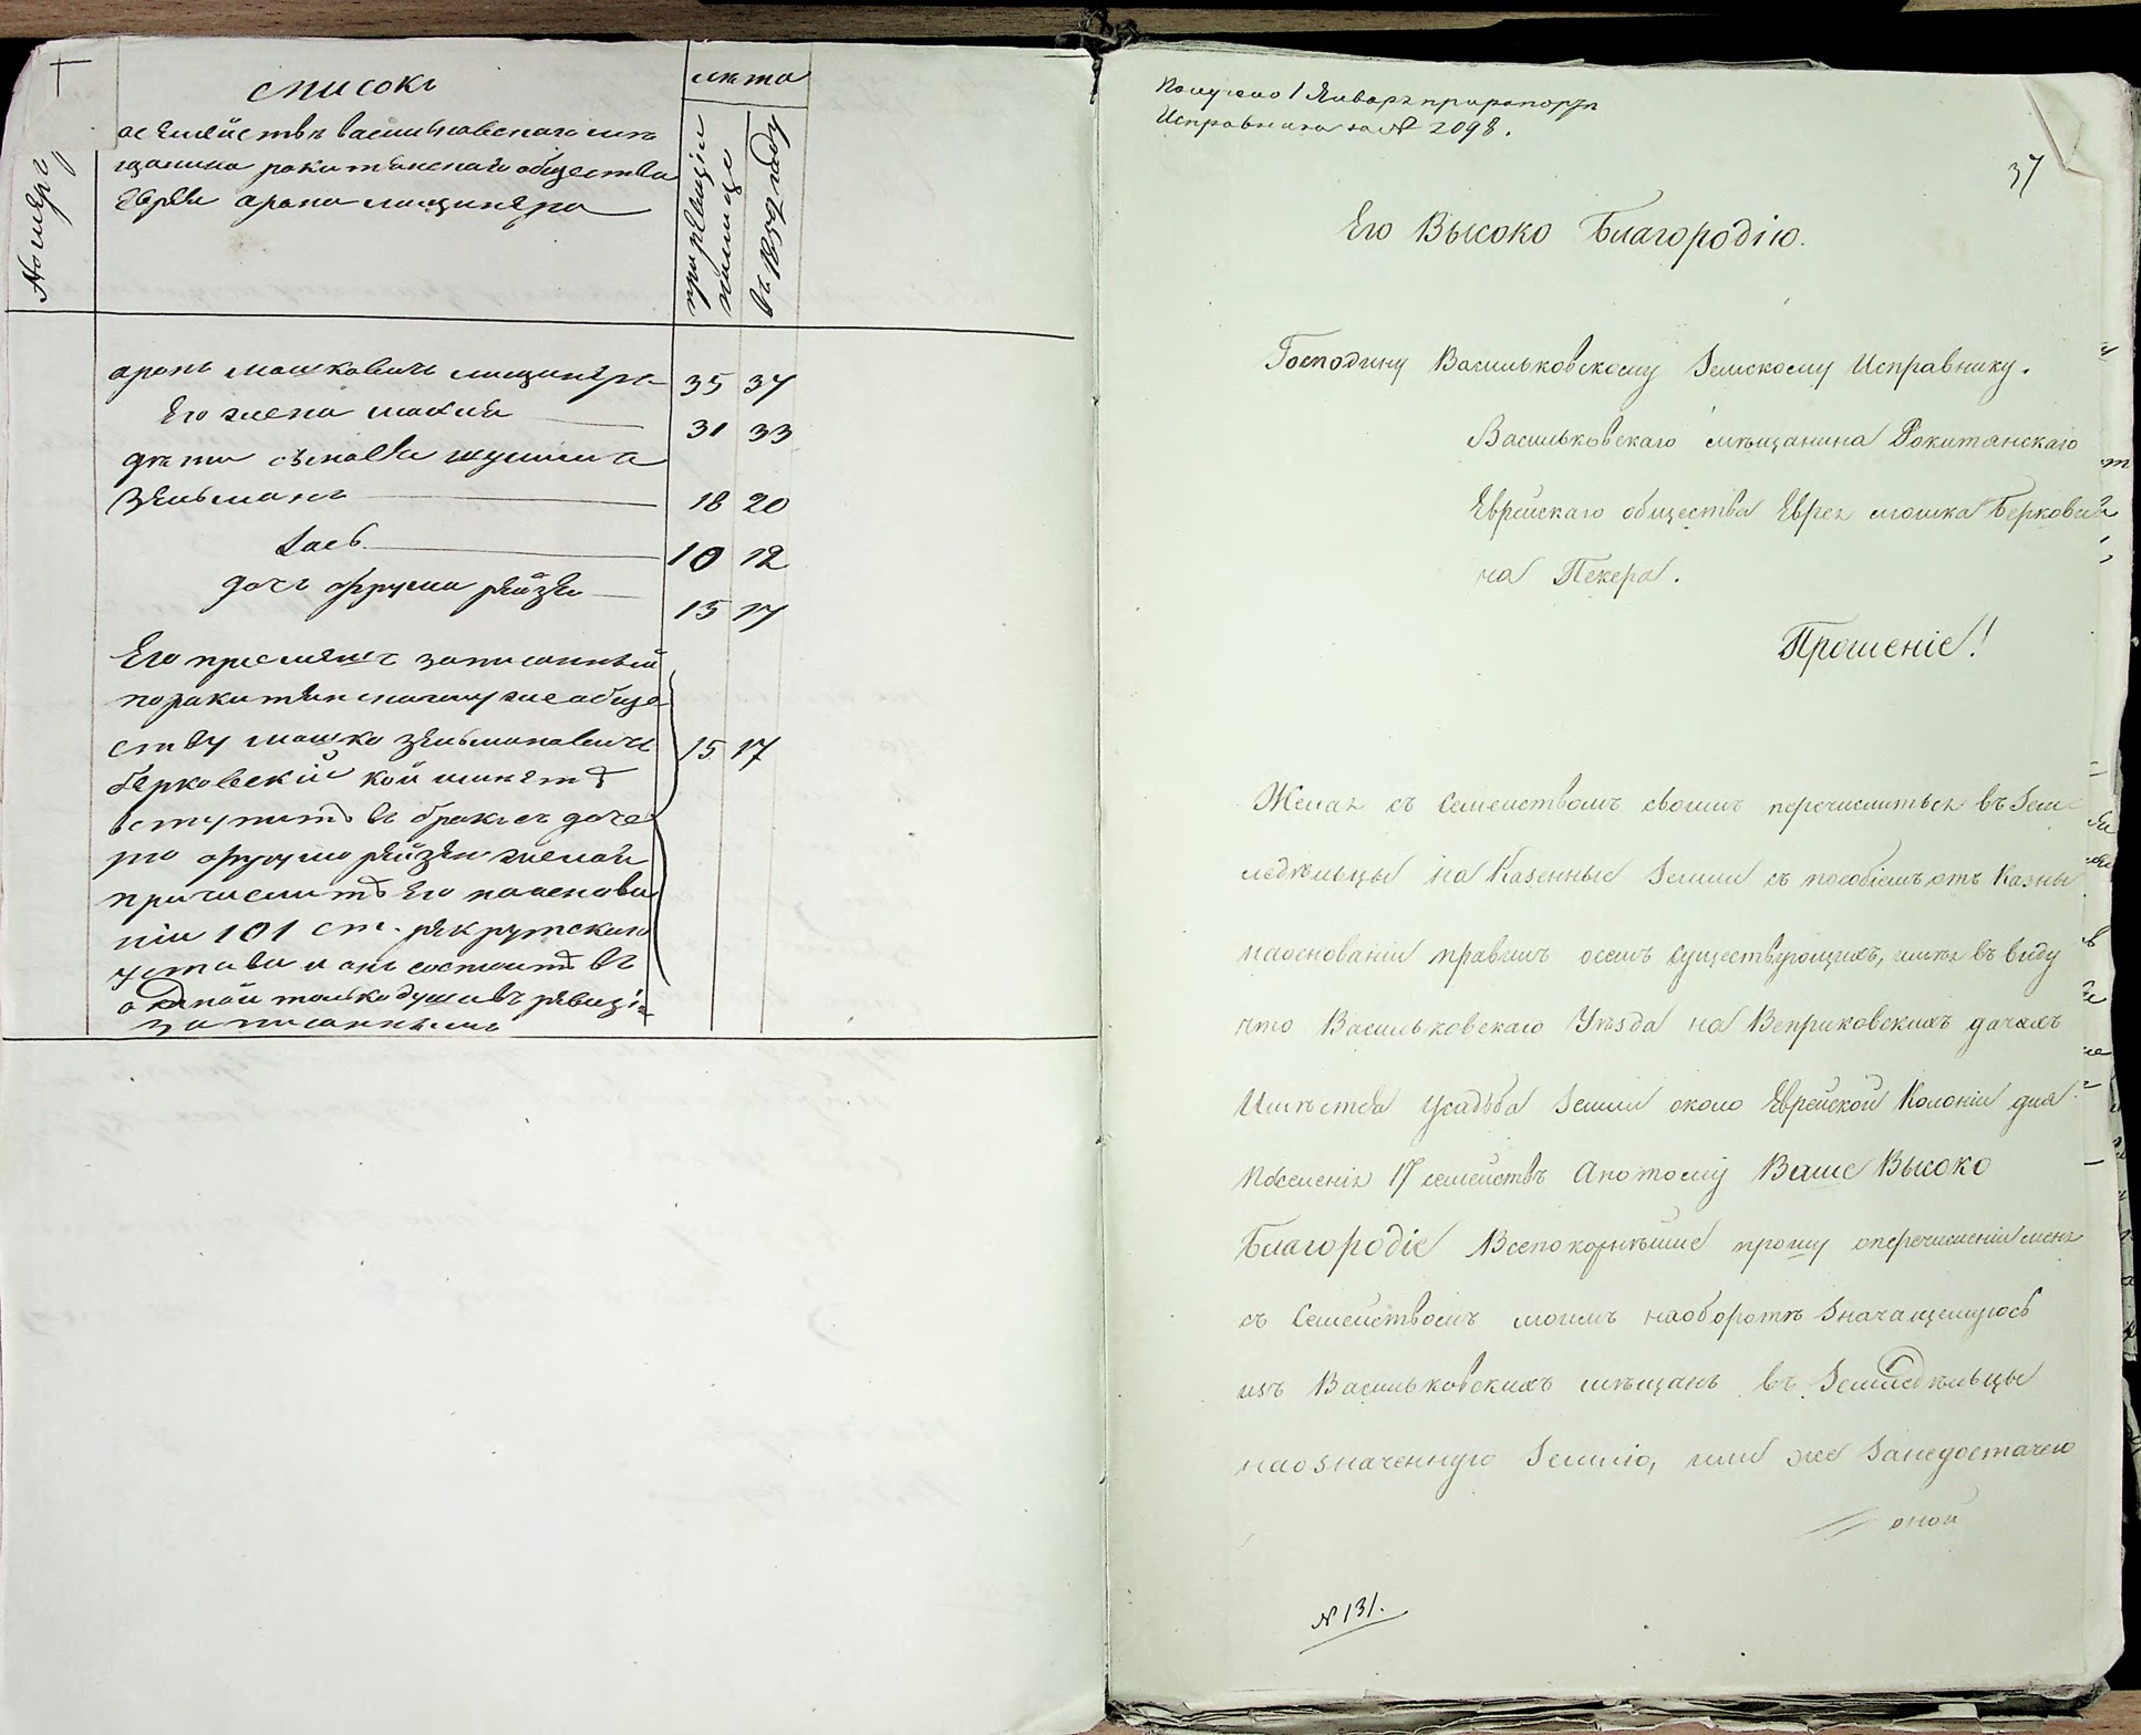 списокъ
лѣта
Номеръ
осемействѣ васильковскаго мѣ
щанина ракитянскаго общества
Еврея арона мицинера
при ревизіи
въ 1852 году
аронъ мошковичъ
35 37
Его жена
31 33
дѣти сыновья
Зельманъ
18 20
10 12
дочъ фрума рейзя
15 17
Его записанный
поракитянскому же обще
ству мошко зельмановичъ
15 17
берковскій кой имѣетъ
вступить въ бракъ съ доче
рю фрумою рейзею женой
причислить Его наоснова
ніи 101 ст. рекрутскаго
устава и онъ состоитъ въ
одной только души въ ревизіи
записаннымъ
Получено 1 Январъ при рапортѣ
Исправника за № 2098.
37
Его Высоко Благородію.
Господину Васильковскому Земскому Исправнику.
Васильковскаго мѣщанина Рокитянскаго
Еврейскаго общества Еврея мошка Беркови
на Пекера.
Прошеніе!
Желая съ Семействомъ своимъ перечислиться въ Зем-
ледѣльцы на Казенные Земли съ пособіемъ отъ Казны
наоснованіи правилъ осемъ существующихъ, имѣя въ виду
что Васильковскаго Уѣзда на Веприковскихъ дачахъ
Имѣется Усадьба Земли около Еврейской Колоніи для
Поселенія 17 семействъ Апотому Ваше Высоко
Благородіе Всепокорнѣйше прошу оперечисленіи меня
съ Семействомъ моимъ наоборотѣ Значащемуюсь
изъ Васильковскихъ мѣщанъ въ Земледѣльцы
наозначенную Землю, или же Занедостачею
оной
№ 131.